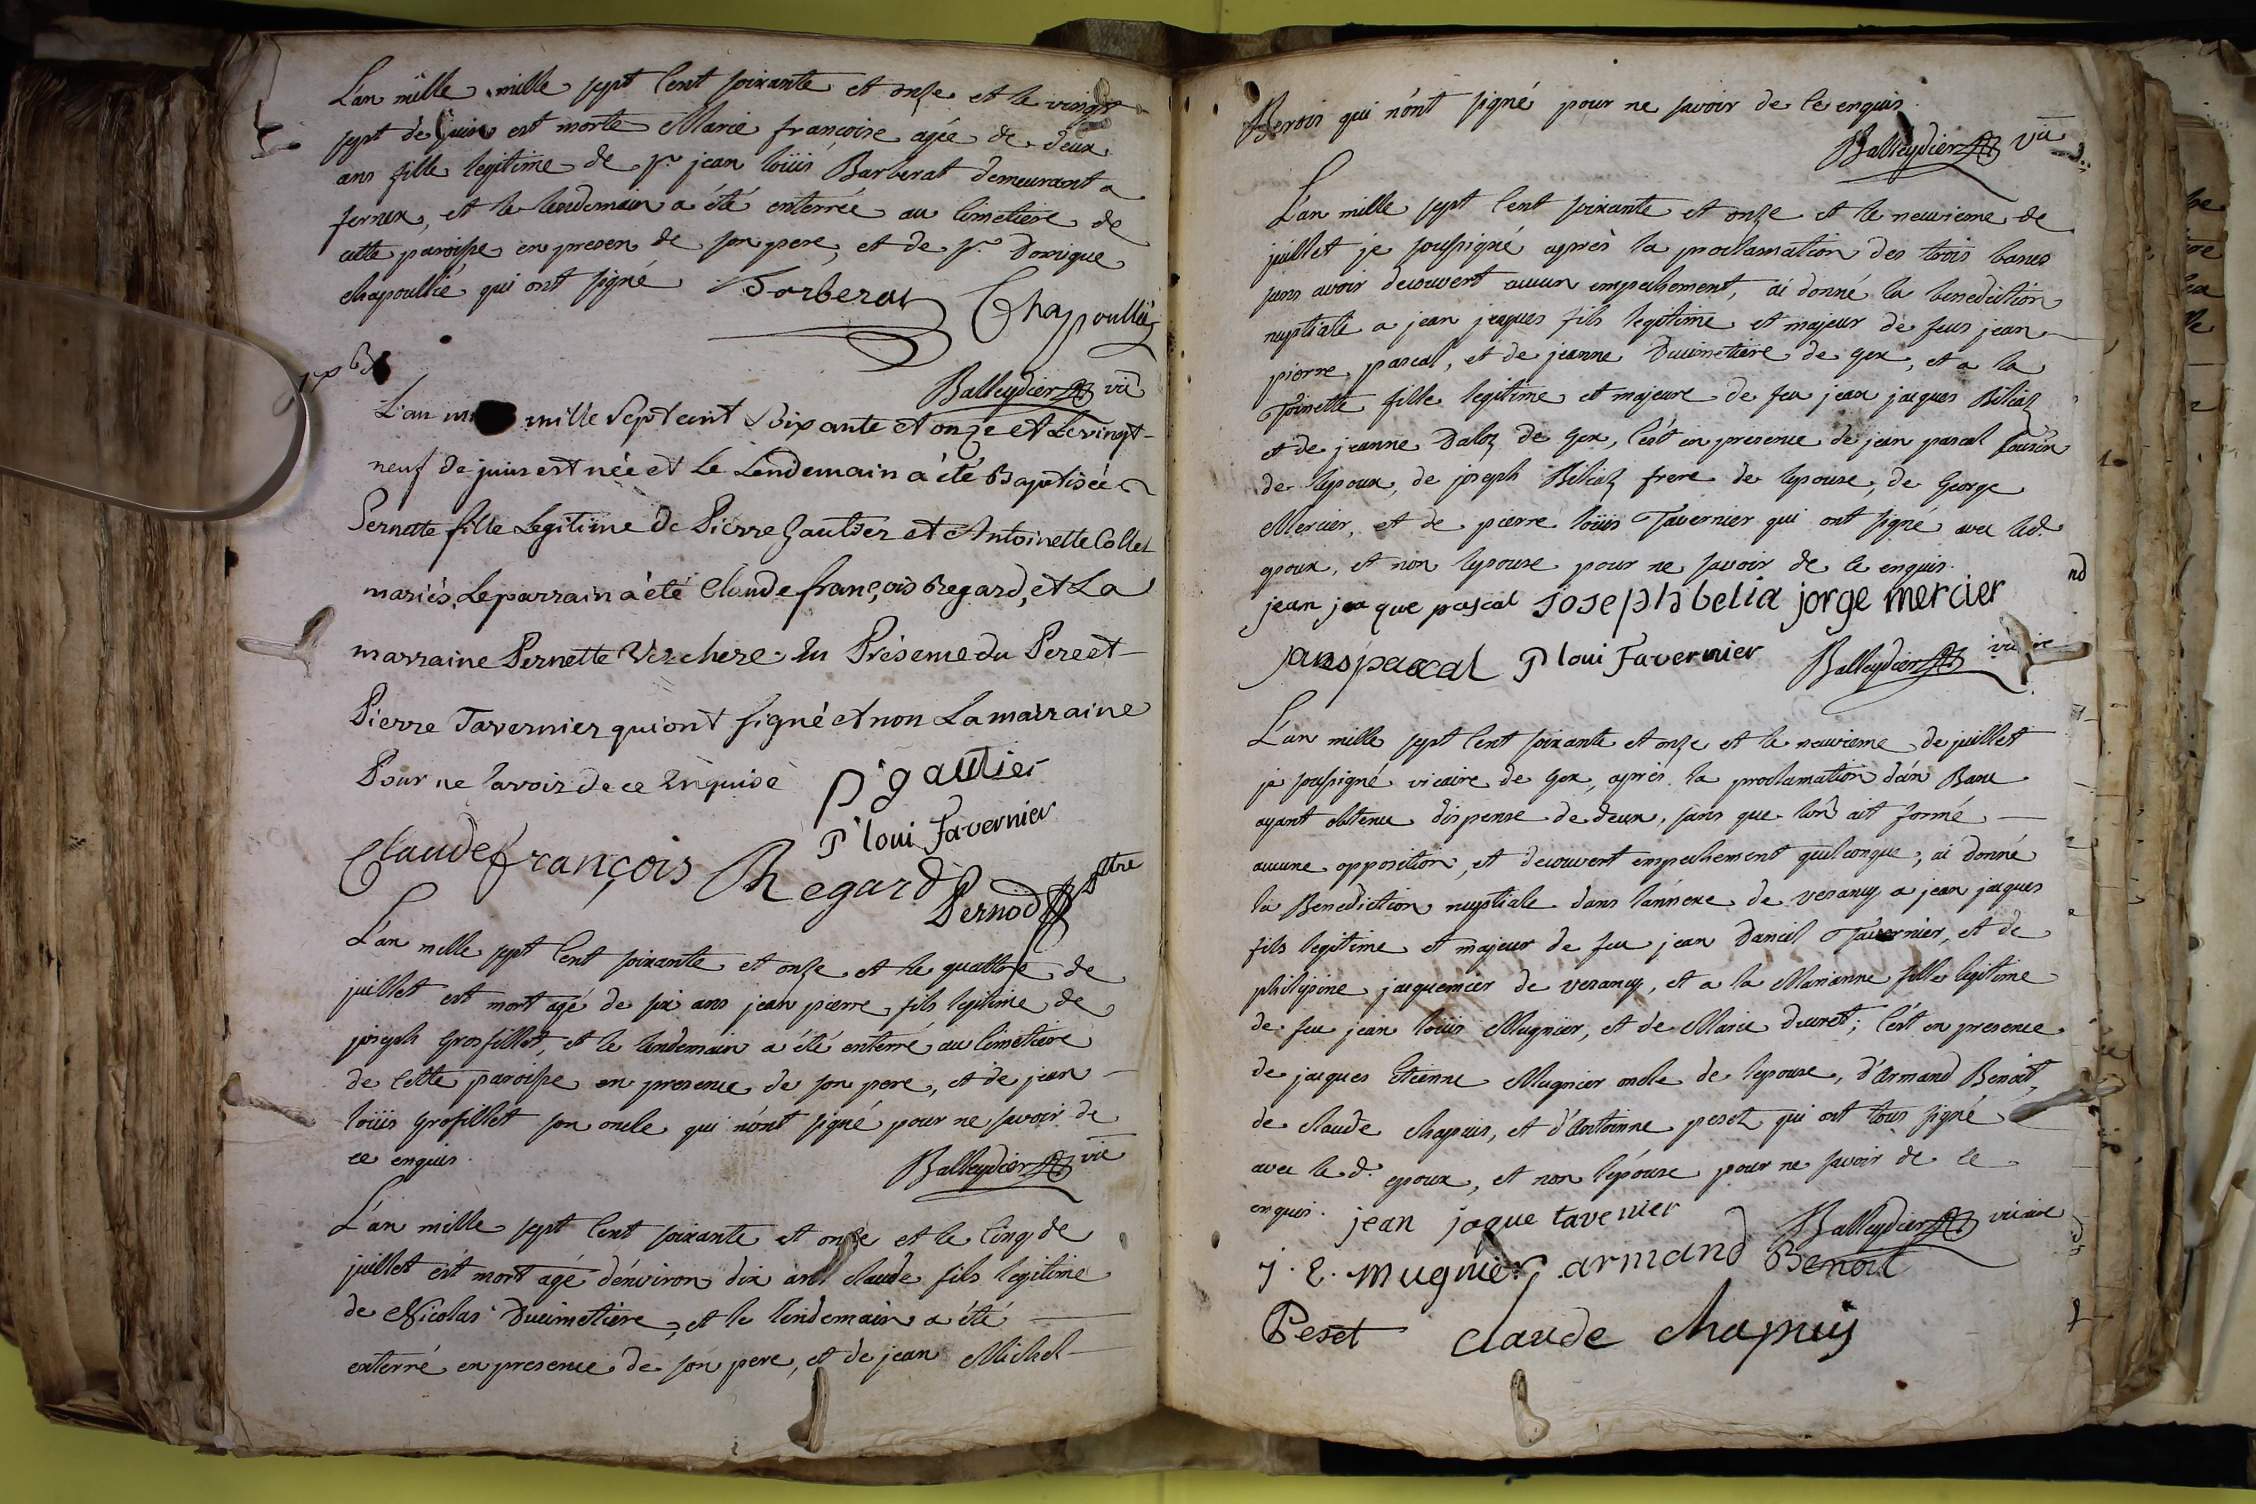 L'an mille mille sept Cent soixante et onze et le vingt
sept de juin est morte Marie francoise agée de deux
ans fille legitime de Sr. jean loüis Barberat demeurant a
fernex, et le lendemain a été enterrée au Cimetiere de
cette paroisse en presen de son pere, et de Sr.
chapoullié qui ont signé Borberat Chapoullié
Balleydier vic
L'an mille Sept cent Soixante et onze et Le vingt-
neuf de juin est née et Le Lendemain à été Baptisée
Pernette fille Legitime de Pierre Gautier et Antoinette Collet
mariés, Le parrain à été Claude françois Regard, et La
marraine Pernette Verchere. En Présence du Pere et
Pierre Tavernier qui ont signé et non La marraine
Pour ne savoir de ce Enquise P. gautier
P loui Tavernier
Claude françois Regard Pernod ptre
L'an mille sept Cent soixante et onze et le quattre de
juillet est mort agé de six ans jean pierre fils legitime de
joseph Grosfillet, et le lendemain a été enterré au Cimetiere
de Cette paroisse en presence de son pere, et de jean
loüis grosfillet son oncle qui n'ont signé pour ne savoir de
ce enquis. Balleydier vic
L'an mille sept Cent soixante et onze et le Cinq de
juillet est mort agé d'environ dix ans claude fils legitime
de Nicolas Ducimetiere, et le lendemain a été
enterré en presence de son pere, et de jean Michel
qui n'ont signé pour ne savoir de Ce enquis.
Balleydier vic
L'an mille sept Cent soixante et onze et le neuvieme de
juillet je soussigné après la proclamation des trois bancs
sans avoir decouvert aucun empechement, ai donné la benediction
nuptiale a jean jacques fils legitime et majeur de feus jean
pierre pascal, et de jeanne Ducimetiere de gex, et a la
Toinette fille legitime et majeure de feu jean jacques Béliaz
et de jeanne Daloz de Gex, C'est en presence de jean pascal Cousin
de lepoux, de joseph Béliaz frere de lepouse, de George
Mercier, et de pierre loüis Tavernier qui ont signé avec led.
epoux, et non lepouse pour ne savoir de ce enquis.
jean jaque pascal joseph belia jorge mercier
jans pascal P loui Tavernier Balleydier vicaire
L'an mille sept Cent soixante et onze et le neuvieme de juillet
je soussigné vicaire de Gex, après la proclamation d'un Banc
ayant obtenu dispense de deux, sans que l'on ait formé
aucune opposition, et decouvert empechement quelconque, ai donné
la Benediction nuptiale dans l'annexe de vesancy a jean jacques
fils legitime et majeur de feu jean Daniel Tavernier, et de
philipine jacquemier de vesancy, et a la Marianne fille legitime
de feu jean loüis Mugnier, et de Marie Ducret; C'est en presence
de jacques Etienne Mugnier oncle de lepouse, d'Armand Benoit,
de claude chapuis, et d'Antoinne peset qui ont tous signé
avec le d. epoux, et non l'epouse pour ne savoir de ce
enquis. jean jaque tavenier Balleydier vicaire
j. E. Mugnier armand Benoit
Peset Claude Chapuis